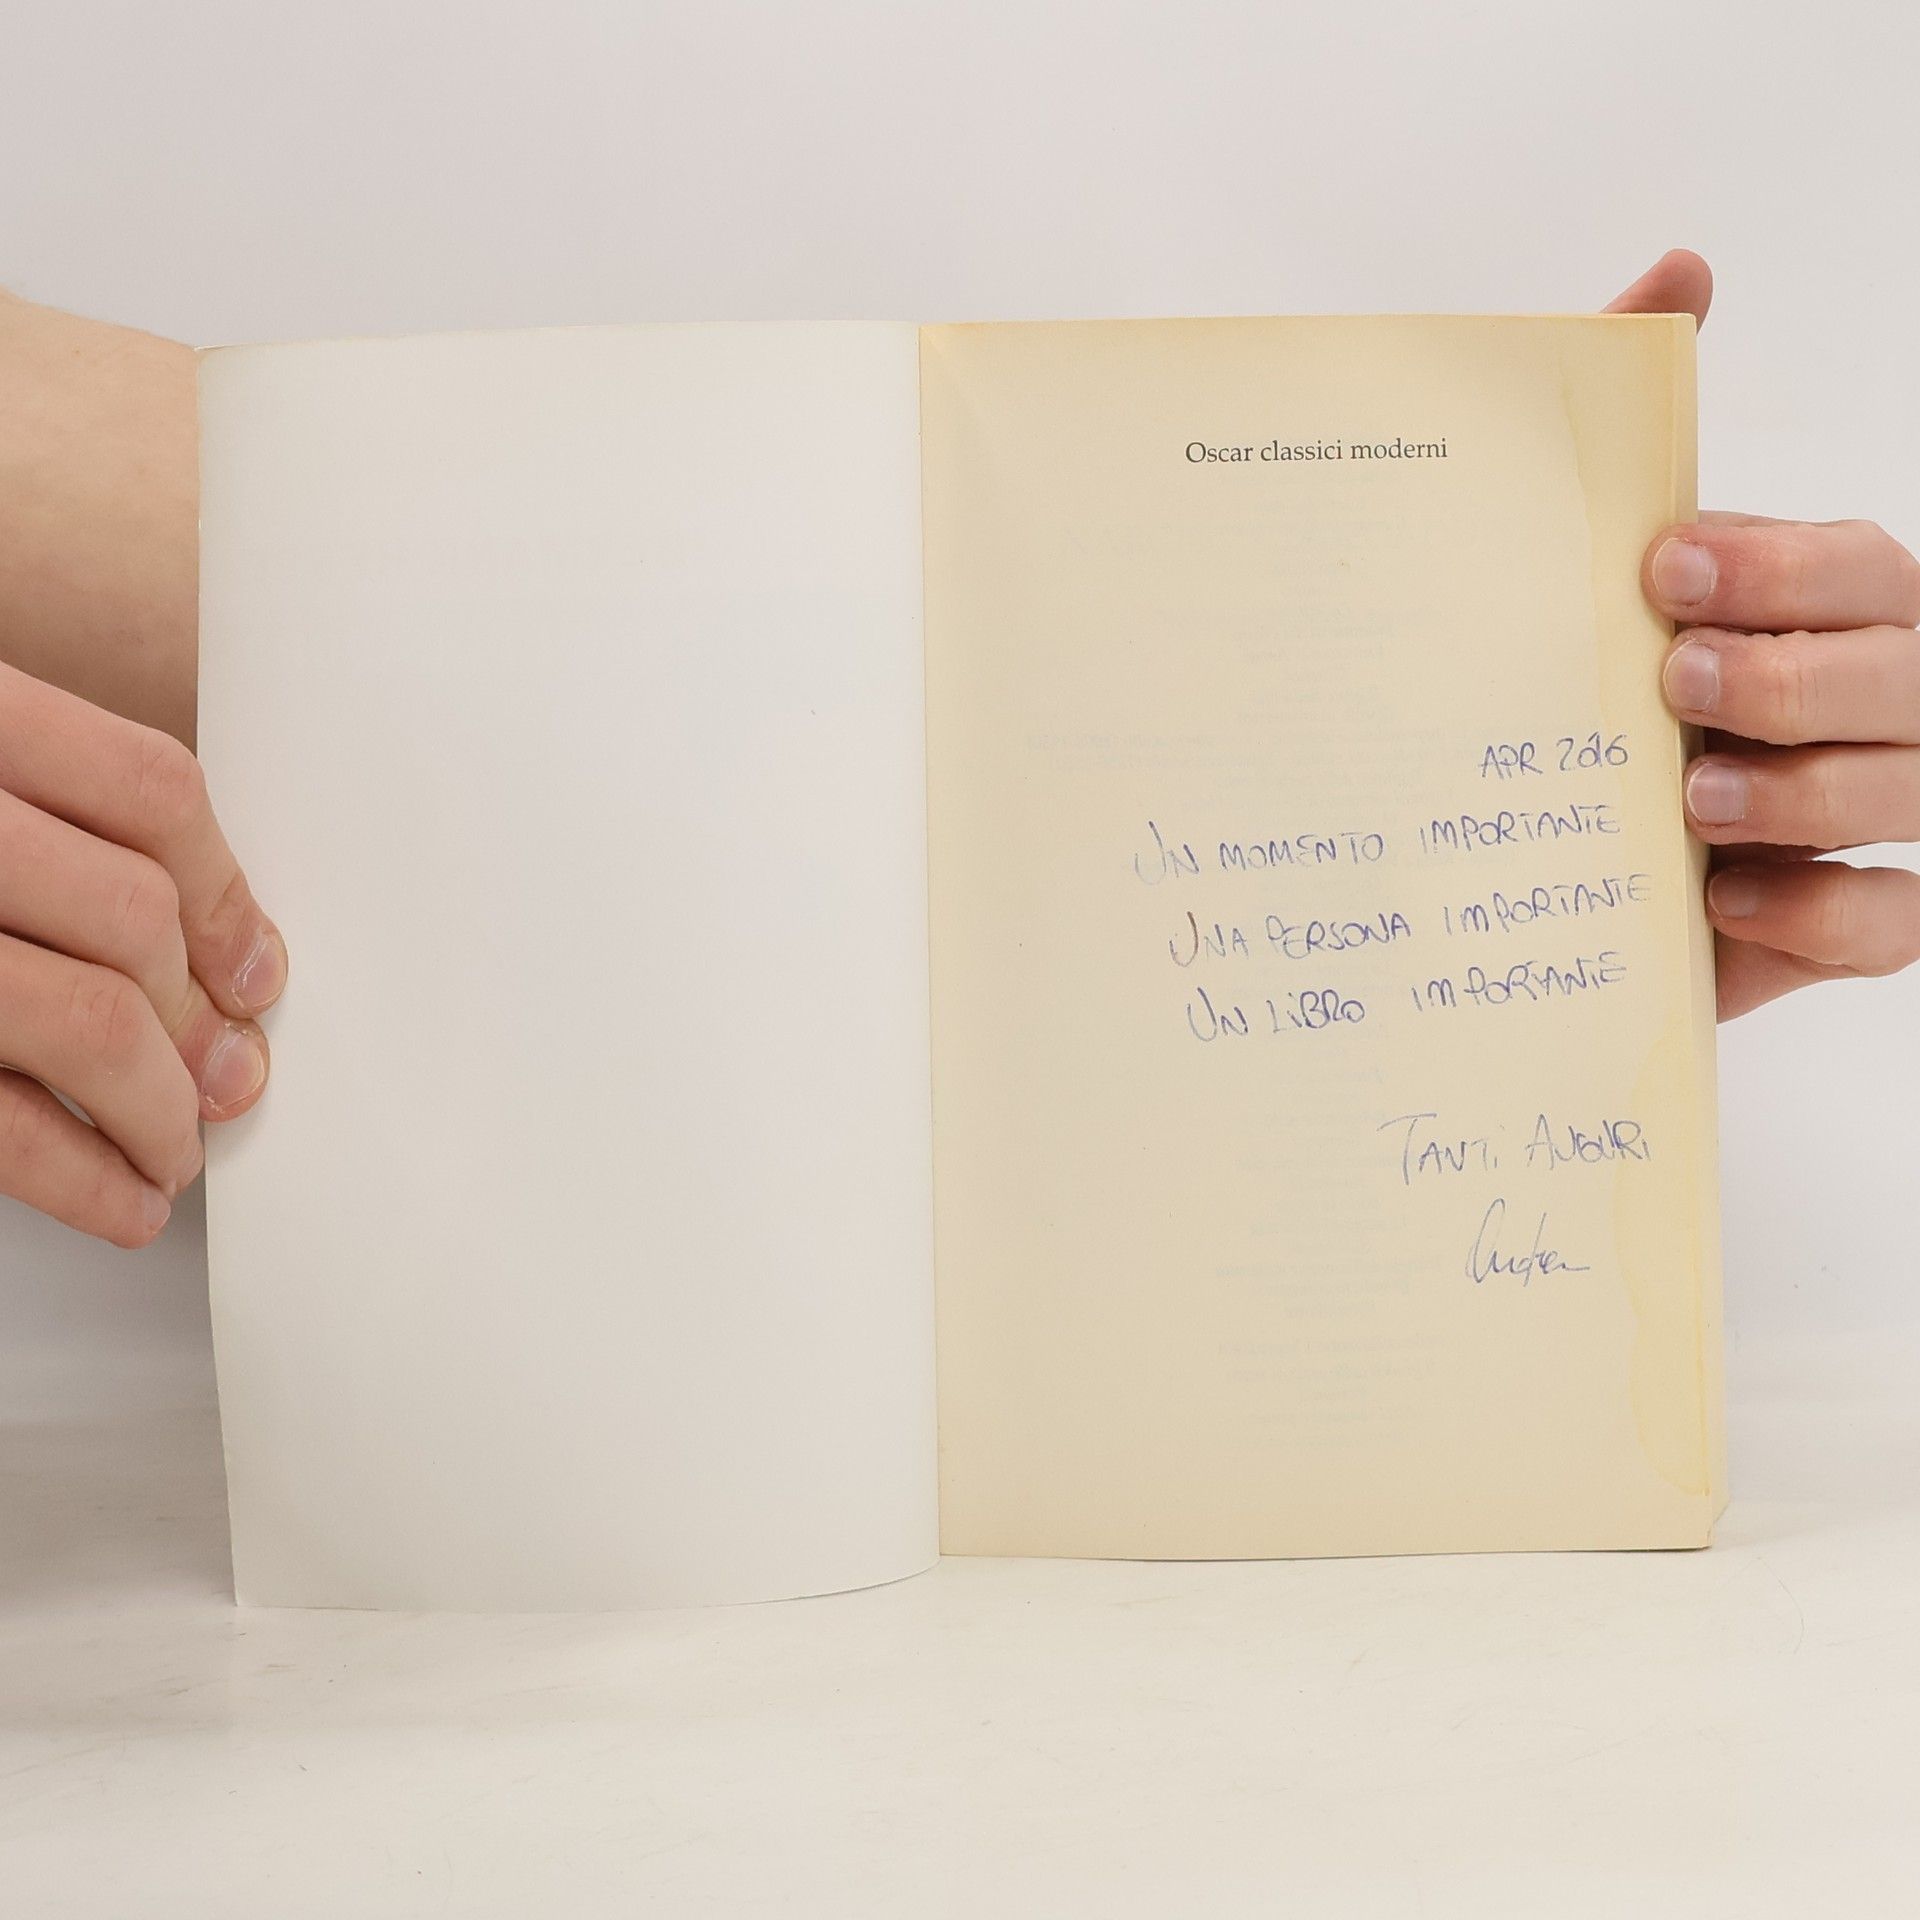 Oscar classici moderni
APR 2016
UN MOMENTO IMPORTANTE
UNA PERSONA IMPORTANTE
UN LIBRO IMPORTANTE
TANTI AUGURI
Andrea